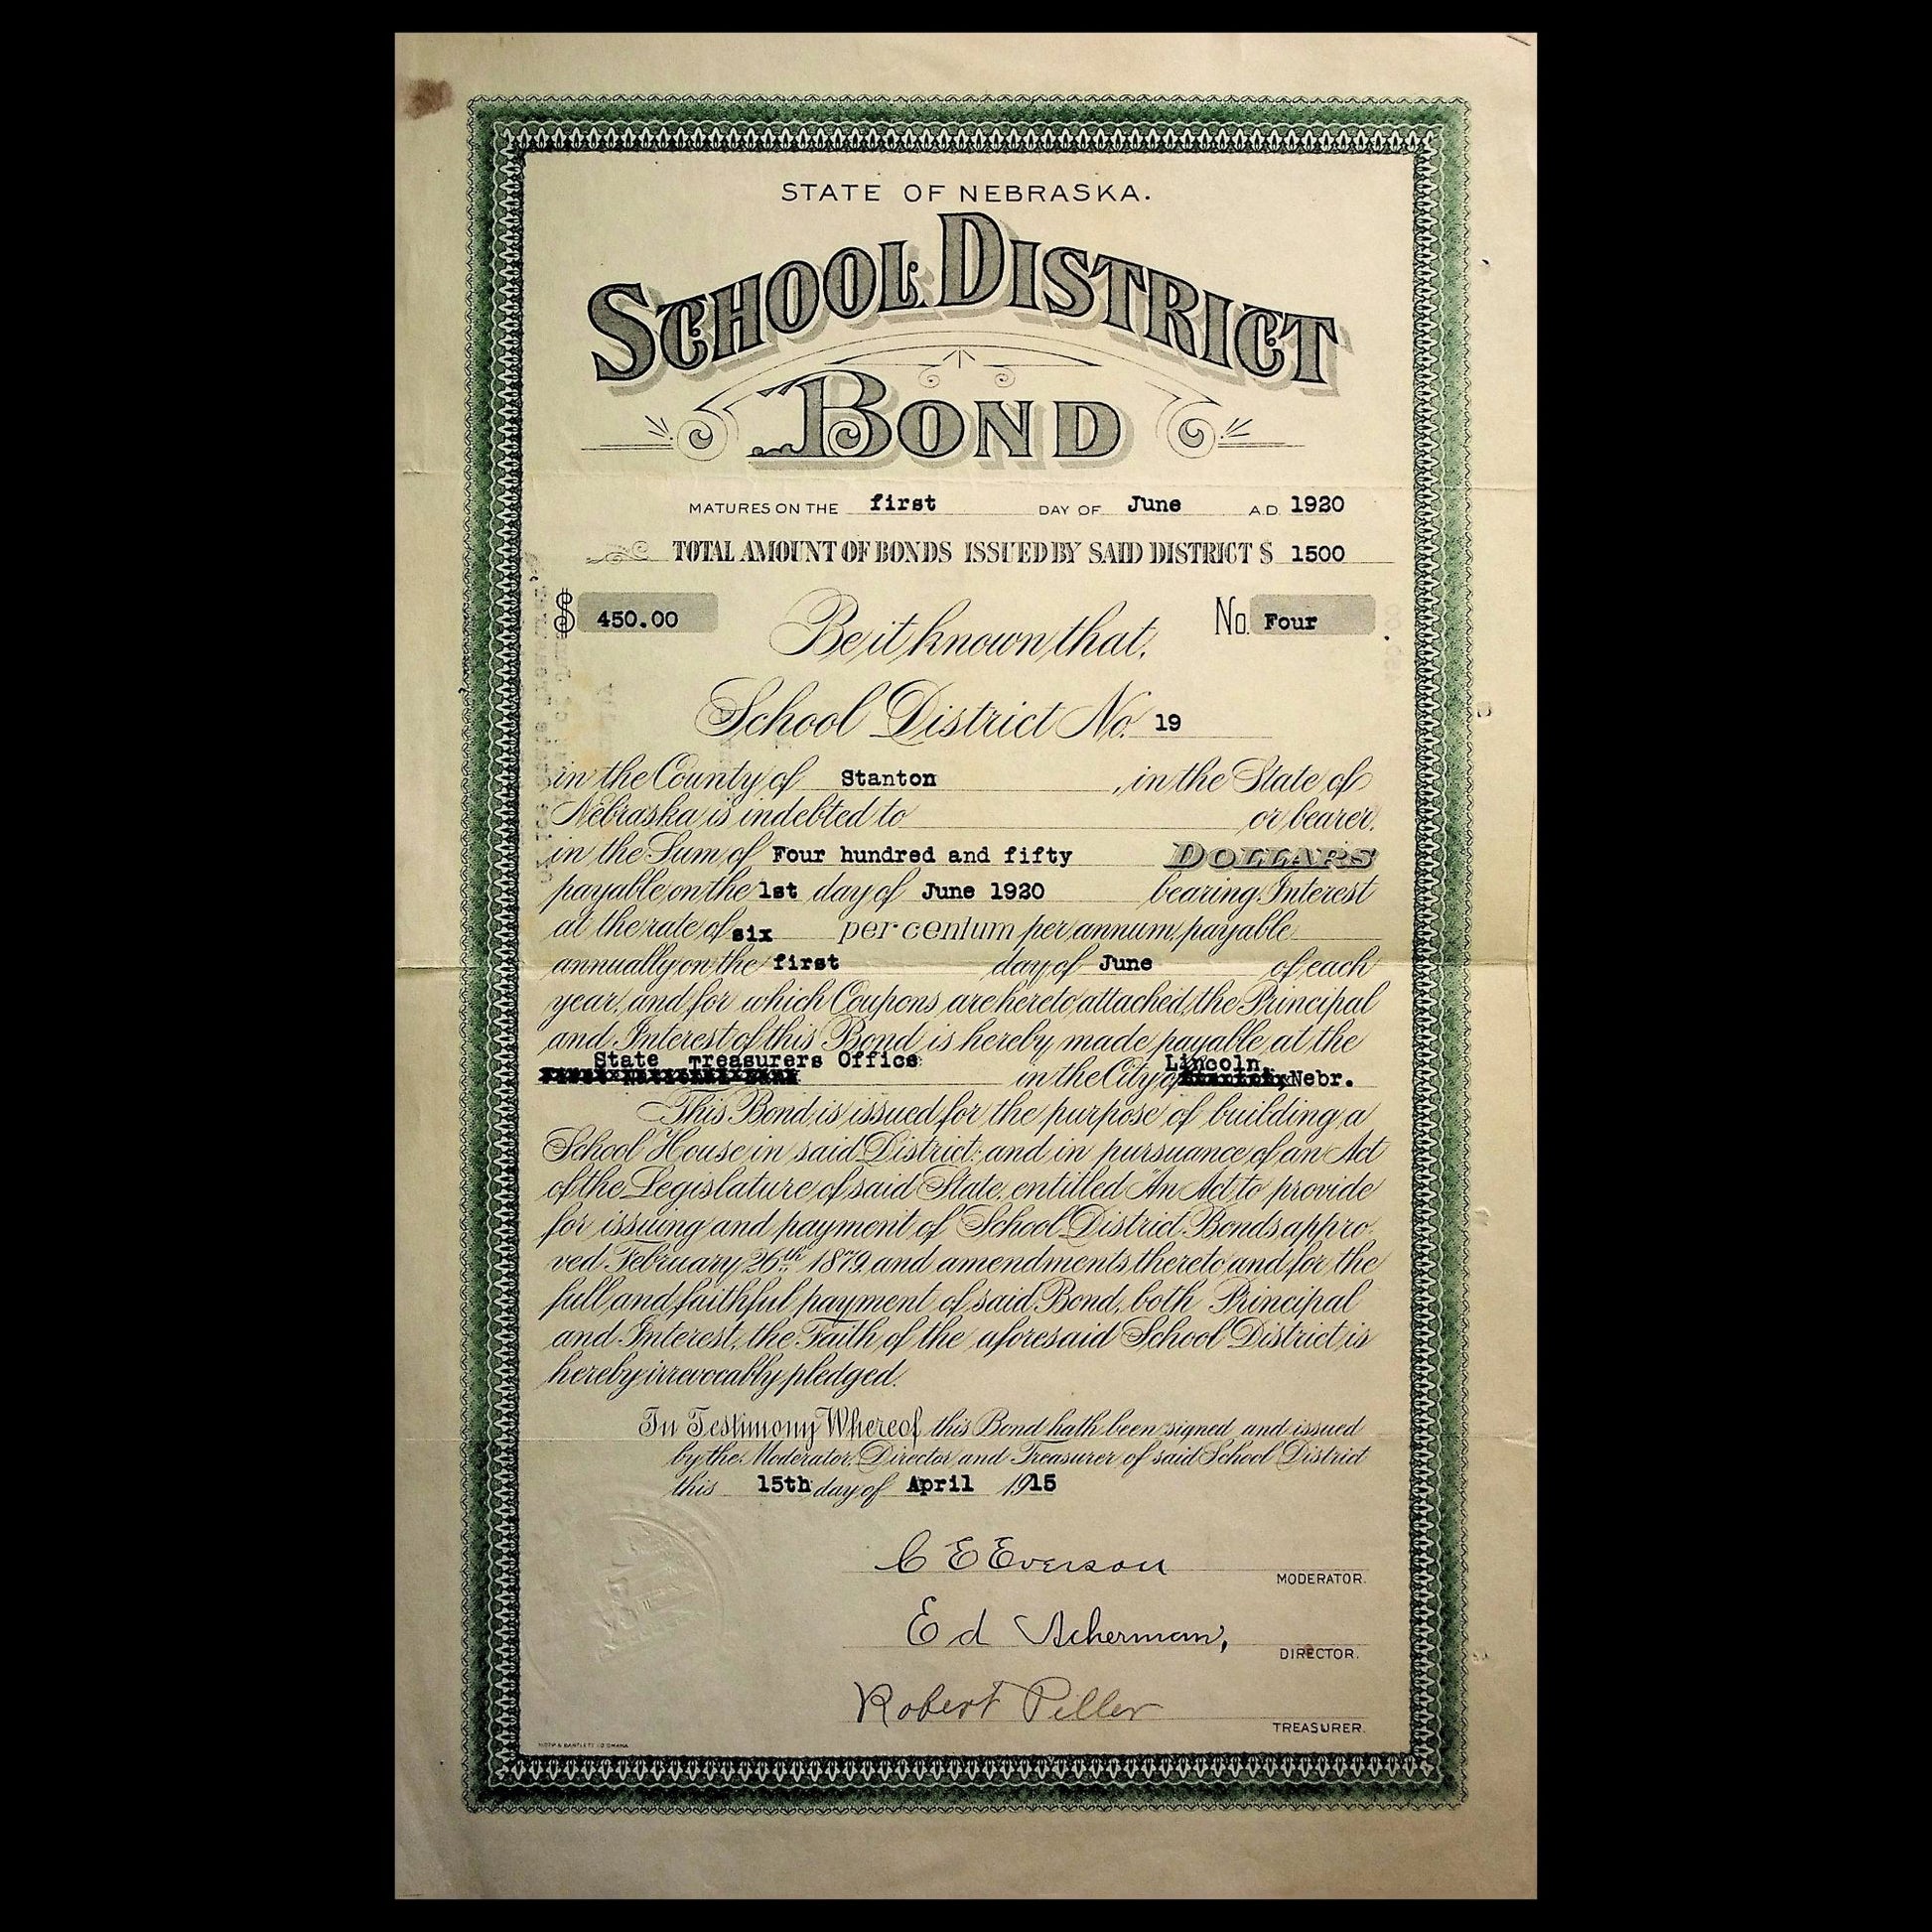 STATE OF NEBRASKA.
SCHOOL DISTRICT
BOND
MATURES ON THE first DAY OF June A.D. 1920
TOTAL AMOUNT OF BONDS ISSUED BY SAID DISTRICT $ 1500
$ 450.00 No. Four
Be it known that,
School District No. 19
in the County of Stanton, in the State of
Nebraska is indebted to or bearer,
in the Sum of Four hundred and fifty DOLLARS
payable on the 1st day of June 1920 bearing Interest
at the rate of six per centum per annum, payable
annually on the first day of June of each
year, and for which Coupons are hereto attached, the Principal
and Interest of this Bond is hereby made payable at the
State Treasurers Office in the City of Lincoln, Nebr.
This Bond is issued for the purpose of building a
School House in said District; and in pursuance of an Act
of the Legislature of said State, entitled "An Act to provide
for issuing and payment of School District Bonds, appro-
ved February 26th 1879, and amendments thereto and for the
full and faithful payment of said Bond, both Principal
and Interest, the Faith of the aforesaid School District is
hereby irrevocably pledged.
In Testimony Whereof this Bond hath been signed and issued
by the Moderator, Director and Treasurer of said School District
this 15th day of April 1915
C E Everson
MODERATOR.
Ed Ackerman,
DIRECTOR.
Robert Piller
TREASURER.